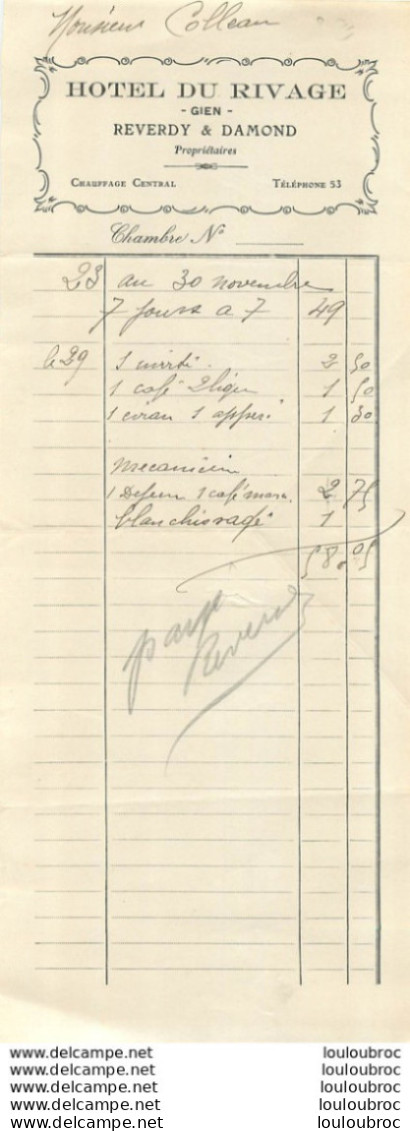 Monsieur Colleau
HOTEL DU RIVAGE
- GIEN -
REVERDY & DAMOND
Propriétaires
CHAUFFAGE CENTRAL TÉLÉPHONE 53
Chambre No
23 au 30 novembre
7 jours a 7 49
le 29 1 2 50
1 café 2 1 50
1 1 1 30
mecanicien
1 1 café 2 75
blanchissage 1
58.05
paye
Reverdy
www.delcampe.net louloubroc
www.delcampe.net louloubroc
www.delcampe.net louloubroc
www.delcampe.net louloubroc